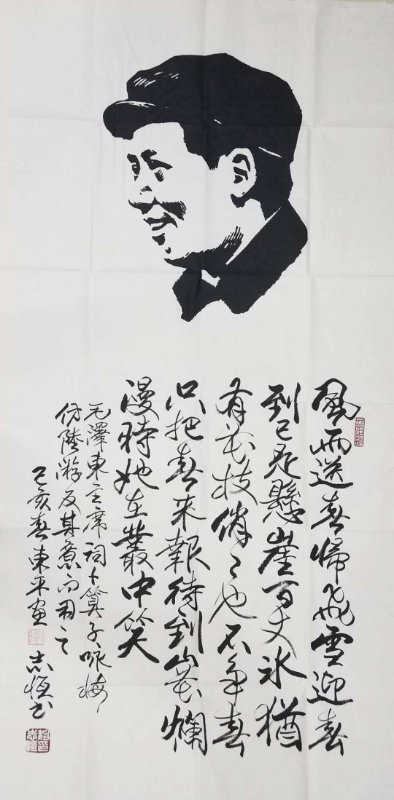 風雨送春歸飛雪迎春
到已是懸崖百丈冰猶
有花枝俏〻也不争春
只把春來報待到山花爛
漫時她在叢中笑
毛澤東主席詞卜算子咏梅
仿陸游反其意而用之
己亥春東平画
志恒书